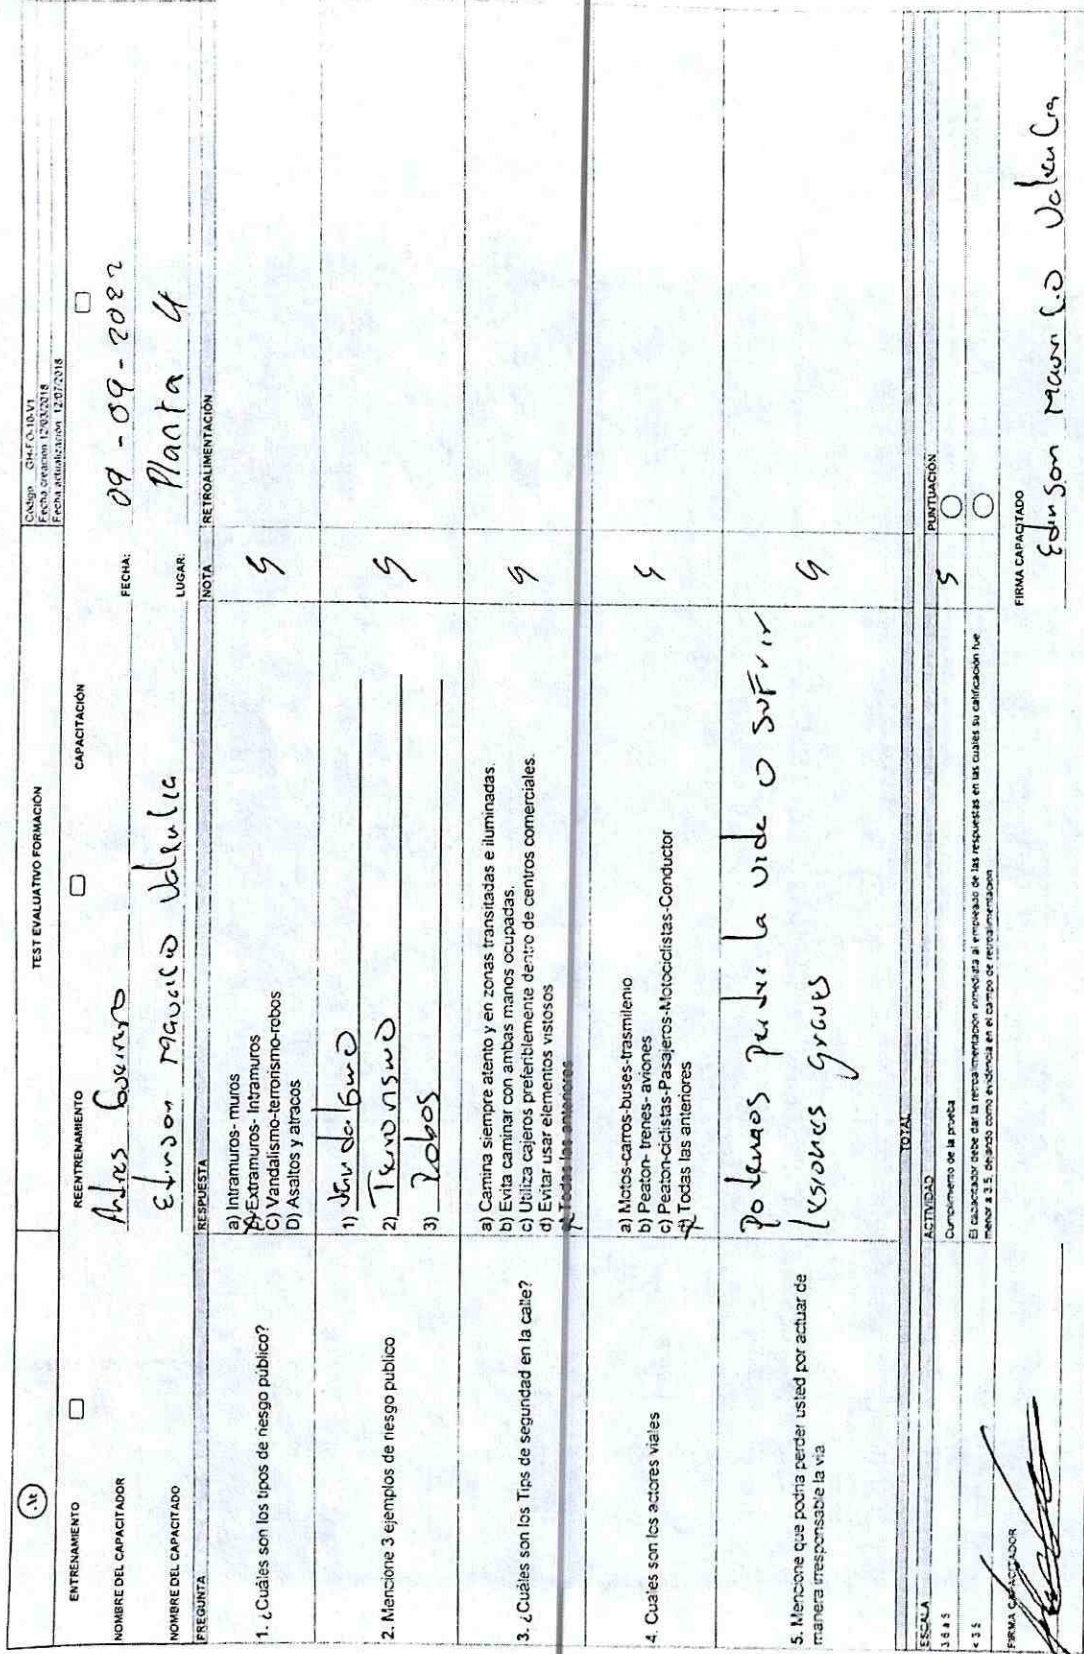 TEST EVALUATIVO FORMACIÓN
Código GH-FO-10-V1
Fecha creación 12/03/2018
Fecha actualización 12/07/2018
ENTRENAMIENTO
REENTRENAMIENTO
CAPACITACIÓN
NOMBRE DEL CAPACITADOR Andres
FECHA: 09-09-2022
NOMBRE DEL CAPACITADO Edinson Mauricio Valencia
LUGAR: Planta 4
PREGUNTA RESPUESTA NOTA RETROALIMENTACIÓN
1. ¿Cuáles son los tipos de riesgo público?
a) Intramuros- muros
Extramuros- Intramuros
C) Vandalismo-terrorismo-robos
D) Asaltos y atracos
5
2. Mencione 3 ejemplos de riesgo publico
1) Vandalismo
2) Terrorismo
3) Robos
5
3. ¿Cuáles son los Tips de seguridad en la calle?
a) Camina siempre atento y en zonas transitadas e iluminadas.
b) Evita caminar con ambas manos ocupadas.
c) Utiliza cajeros preferiblemente dentro de centros comerciales.
d) Evitar usar elementos vistosos
Todas las anteriores
5
4. Cuales son los actores viales
a) Motos-carros-buses-trasmilenio
b) Peaton- trenes- aviones
c) Peaton-ciclistas-Pasajeros-Motociclistas-Conductor
d) Todas las anteriores
5
5. Mencione que podria perder usted por actuar de
manera irresponsable la via
Podemos perder la vida o sufrir
lesiones graves
5
TOTAL
ESCALA ACTIVIDAD PUNTUACIÓN
3.6 a 5 Cumplimiento de la prueba 5
< 3.5 El capacitador debe dar la retroalimentación inmediata al empleado de las respuestas en las cuales su calificación fue
menor a 3.5, dejando como evidencia en el campo de retroalimentacion
FIRMA CAPACITADOR
FIRMA CAPACITADO
Edinson Mauricio Valencia